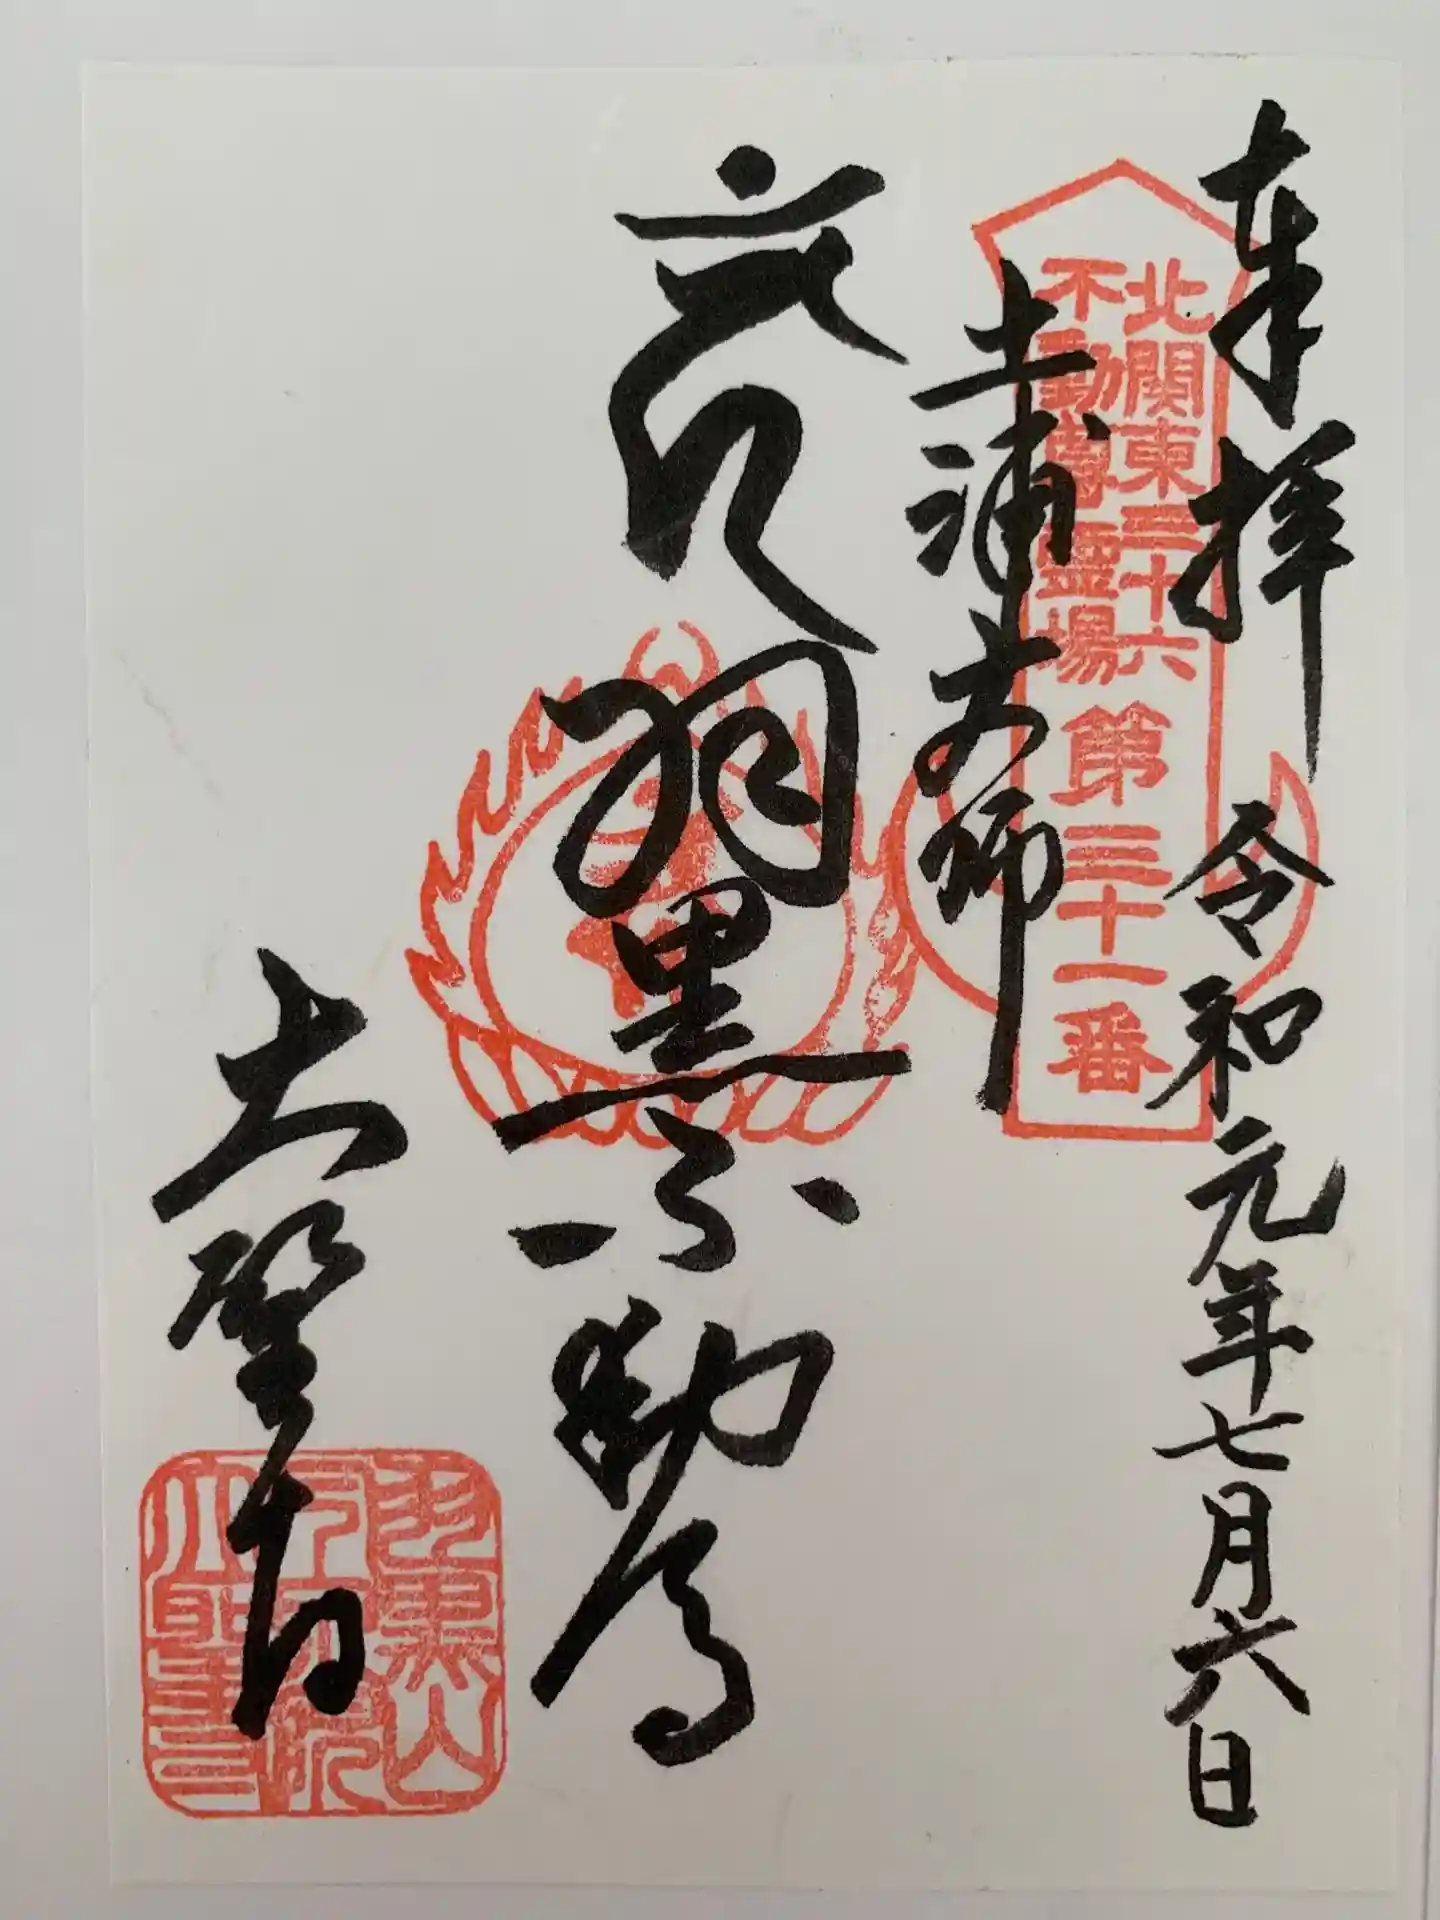 奉拝 令和元年七月六日
北関東三十六
不動尊霊場
第三十一番
土浦大師
羽黒不動尊
大聖寺
羽黒山